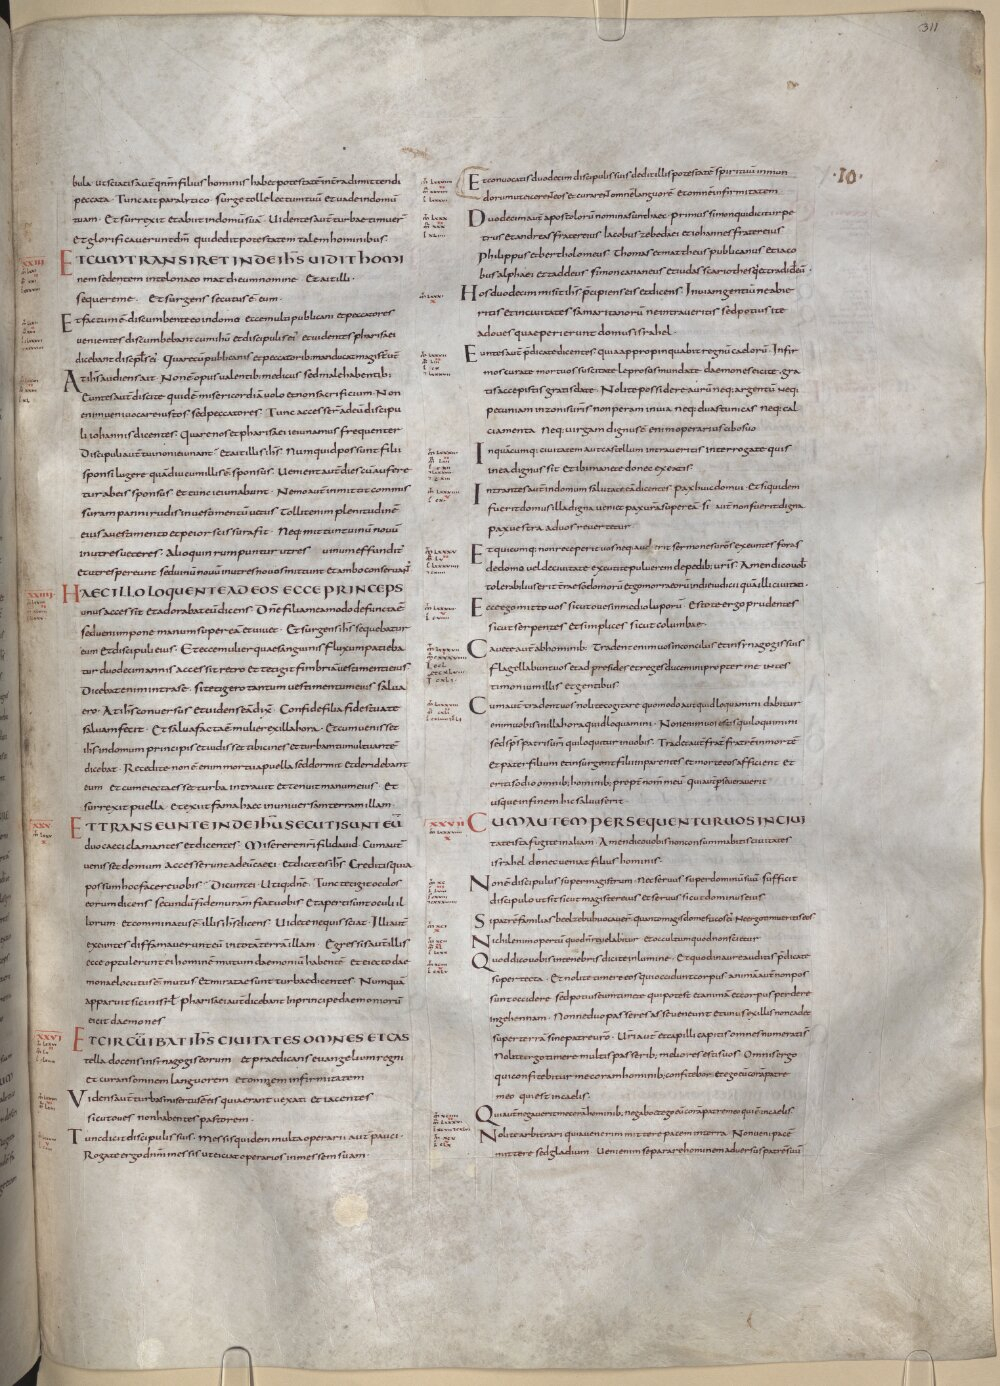 311
·10·
bula· ut sciatis aut̄ qnm̄ filius hominis habet potestatē interra dimittendi
peccata· Tunc ait paralytico· surge tolle lectum tuū et uade indomū
tuam· Et surrexit et abiit indomū suā· Uidentes aut̄ turbae timuer̄
et glorificauerunt dm̄ qui dedit potestatem talem hominibus·
XXIII
ET CUM TRANSIRET INDE IHS UIDIT HOMI
nem sedentem in teloneo mattheum nomine· Et ait illi·
sequere me· Et surgens secutus ē eum·
Et factum ē discumbente eo indomo ecce multi publicani et peccatores
uenientes discumbebant cum ihū et discipulis ei· et uidentes pharisaei
dicebant discipl̄is ei· Quare cū publicanis et peccatorib; manducat magist̄ ur̄
At ihs audiens ait· Non ē opus ualentib; medicus sed male habentib;
Euntes aut̄ discite quid ē misericordiā uolo et non sacrificium· Non
enim ueni uocare iustos sed peccatores· Tunc accesser̄ ad eū discipu
li iohannis dicentes· Quare nos et pharisaei ieiunamus frequenter
Discipuli aut̄ tui non ieiunant· et ait illis ihs· Numquid possunt filii
sponsi lugere quādiu cum illis ē sponsus· Uenient aut̄ dies cū aufere
tur ab eis sponsus et tunc ieiunabunt· Nemo aut̄ inmittit commis
suram panni rudis inuestimentū uetus· Tollit enim plenitudinē
eius auestimento et peior scissura fit· Neq; mittunt uinū nouū
inutres ueteres· Alioquin rumpuntur utres uinum effundit̄
et utres pereunt sed uinū nouū inutres nouos mittunt et ambo conseruant̄
XXIIII
HAEC ILLO LOQUENTE AD EOS ECCE PRINCEPS
unus accessit et adorabat eū dicens· Dn̄e filia mea modo defuncta ē
sed ueni inpone manum super eā et uiuet· Et surgens ihs sequebatur
eum et discipuli eius· Et ecce mulier quae sanguinis fluxum patieba
tur duodecim annis accessit retro et tetigit fimbriā uestimenti eius
Dicebat enim intra se· si tetigero tantum uestimentum eius salua
ero· At ihs conuersus et uidens eā dix̄· Confide filia fides tua te
saluam fecit· Et salua facta ē mulier ex illa hora· Et cum uenisset
ihs indomum principis et uidisset tibicines et turbam tumultuantē
dicebat· Recedite non ē enim mortua puella sed dormit et deridebant
eum· Et cum eiecta esset turba intrauit et tenuit manum eius· Et
surrexit puella· Et exiit fama haec inuniuersam terram illam·
XXV
ET TRANSEUNTE INDE IHŪ SECUTI SUNT EŪ
duo caeci clamantes et dicentes· Miserere nr̄i fili dauid· Cum aut̄
uenisset domum accesserunt ad eū caeci· Et dicit eis ihs· Creditis quia
possum hoc facere uobis· Dicunt ei· Utiq; dn̄e· Tunc tetigit oculos
eorum dicens· secundū fidem uram̄ fiat uobis· Et aperti sunt oculi il
lorum· et comminatus ē illis ihs dicens· Uidete ne quis sciat· Illi aut̄
exeuntes diffamauerunt eū intota terra illam· Egressis aut̄ illis
ecce optulerunt ei hominē mutum daemoniū habentē· Et eiecto dae
monae locutus ē mutus· Et miratae sunt turbae dicentes· Numquā
apparuit sic in isr̄l· Pharisaei aut̄ dicebant· In principe daemoniorū
eicit daemones·
XXVI
ET CIRCUIBAT IHS CIUITATES OMNES ET CAS
tella· docens insynagogis eorum· et praedicans euangelium regni
et curans omnem languorem· et omnem infirmitatem
Uidens aut̄ turbas misertus ē eis quia erant uexati· et iacentes
sicut oues non habentes pastorem·
Tunc dicit discipulis suis· Messis quidem multa operarii aut̄ pauci·
Rogate ergo dnm̄ messis ut eiciat operarios inmessem suam·
Et conuocatis duodecim discipulis suis dedit illis potestatē spirituū inmun
dorum ut eicerent̄ eos et curarent̄ omnē languorē et omnē infirmitatem
Duodecim aut̄ apostolorū nomina sunt haec· primus simon qui dicitur pe
trus et andreas frater eius· Iacobus zebedaei et iohannes frater eius
Philippus et bertholomeus· Thomas et mattheus publicanus et iaco
bus alphaei et taddeus· simon cananeus et iudas scariothes q̄ et tradid̄ eū·
Hos duodecim misit ihs p̄cipiens eis et dicens· Inuiam gentiū ne abie
ritis et inciuitates samaritanorū ne intraueritis sed potius ite
ad oues quae perierunt domus israhel·
Euntes aut̄ p̄dicate dicentes· quia appropinquabit regnū caelorū· Infir
mos curate mortuos suscitate leprosos mundate daemones eicite· gra
tis accepistis gratis date· Nolite possidere aurū neq; argentū neq;
pecuniam inzonis ur̄is non peram inuia neq; duas tunicas neq; cal
ciamenta· Neq; uirgam dignus ē enim operarius cibo suo
Inquācumq; ciuitatem aut castellum intraueritis interrogate quis
inea dignus sit et ibi manete donec exeatis·
Intrantes aut̄ indomum salutate eā dicentes· pax huic domui· Et siquidem
fuerit domus illa digna ueniet pax ura super eā· si aut̄ non fuerit digna
pax uestra ad uos reuertetur·
Et quicumq; non receperit uos neq; audierit sermones uros̄ exeuntes foras
dedomo uel deciuitate excutite puluerem de pedib; ur̄is· Amen dico uob̄
tolerabilius erit trae sodomorū et gomorraeorū indie iudicii quā illi ciuitati·
Ecce ego mitto uos sicut oues inmedio luporū· Estote ergo prudentes
sicut serpentes et simplices sicut columbae·
Cauete aut̄ ab hominib; Tradent enim uos inconciliis et insynagogis suis
flagellabunt uos et ad presides et reges ducemini propter me intes
timonium illis et gentibus·
Cum aut̄ tradent uos nolite cogitare quomodo aut quid loquamini· dabitur
enim uobis inilla hora quid loquamini· Non enim uos estis qui loquimini
sed sp̄s patris ur̄i qui loquitur inuobis· Tradet aut̄ frat̄ fratrē inmortē
et pater filium et insurgent filii inparentes et morte eos afficient· Et
eritis odio omnib; hominib; propt̄ nom̄ meū· qui aut̄ p̄seuerauerit
usque infinem hic saluus erit·
XXVII
CUM AUTEM PERSEQUENTUR UOS IN CIUI
tate ista fugite inaliam· Amen dico uobis non consummabitis ciuitates
israhel donec ueniat filius hominis·
Non ē discipulus super magistrum· Nec seruus super dominū suū· sufficit
discipulo ut sit sicut magister eius et seruus sicut dominus eius
Si patrē familias beelzebub uocauer̄ quanto magis domesticos ei· Ne ergo timueritis eos
Nichil enim opertū quod n̄ reuelabitur et occultum quod non scietur
Quod dico uobis intenebris dicite inlumine· Et quod inaure auditis p̄dicate
super tecta· Et nolite timere eos qui occidunt corpus animā aut̄ non pos
sunt occidere· sed potius eum timete qui potest et animā et corpus perdere
ingehennam· Nonne duo passeres asse ueneunt et unus ex illis non cadet
super terrā sine patre uro᷒· Uri̅ aut̄ et capilli capitis omnes numerati s̄
Nolite ergo timere multis passerib; meliores estis uos· Omnis ergo
qui confitebitur me coram hominib; confitebor et ego eū corā patre
meo qui est incaelis·
Qui aut̄ negauerit me corā hominib; negabo et ego eū corā patre meo qui ē incaelis
Nolite arbitrari quia uenerim mittere pacem interra· Non ueni pacē
mittere sed gladium· Ueni enim separare hominem aduersus patrē suū